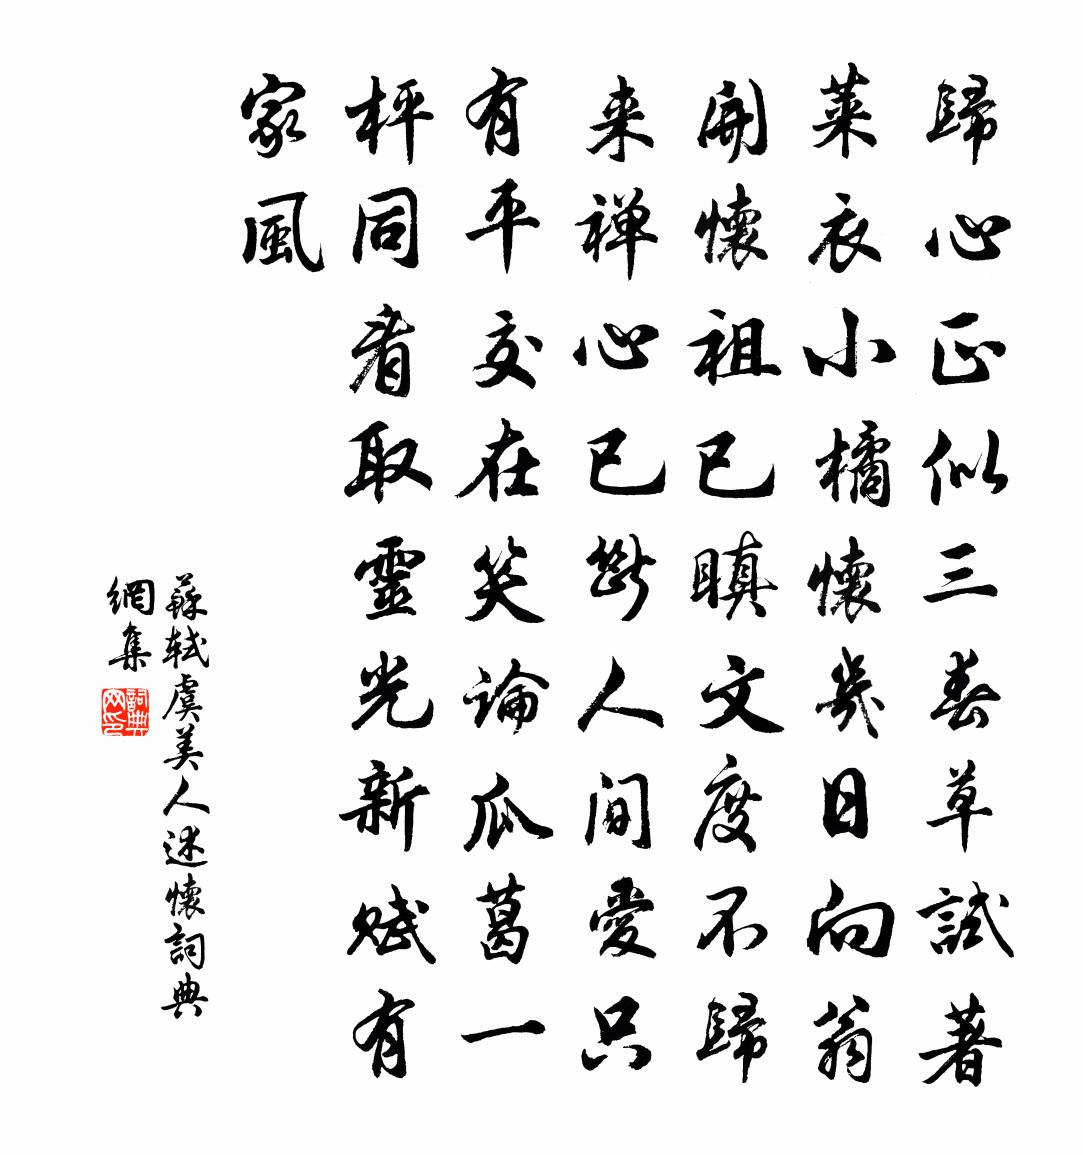 歸心正似三春草試著
萊衣小橘懷幾日向翁
開懷祖已瞋文度不歸
来禅心已斷人間愛只
有平交在笑論瓜葛一
枰同看取靈光新賦有
家風
蘇軾虞美人述懷詞典
網集
詞典